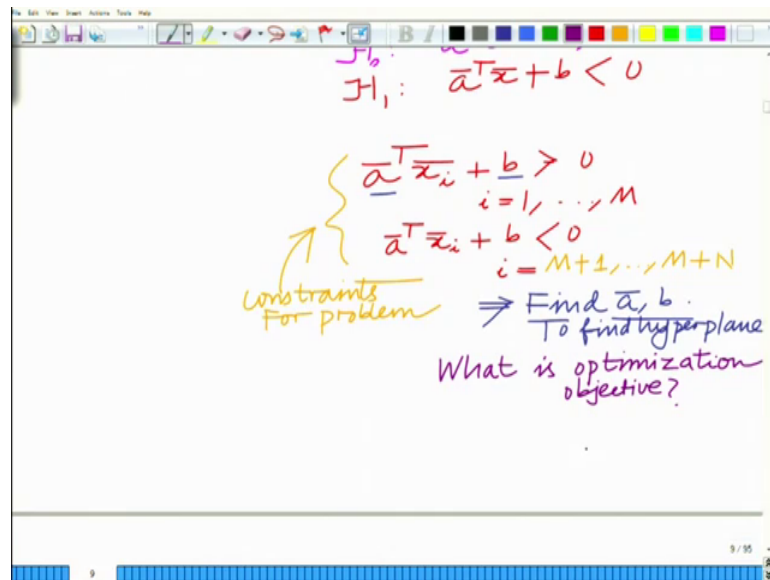 File Edit View Insert Actions Tools Help
B I
H₁: a̅ᵀx̅ + b < 0
a̅ᵀx̅ᵢ + b > 0
i = 1, .., M
a̅ᵀx̅ᵢ + b < 0
i = M+1, .., M+N
constraints
For problem
⇒ Find a̅, b.
To find hyperplane
What is optimization
objective?
9 / 95
9